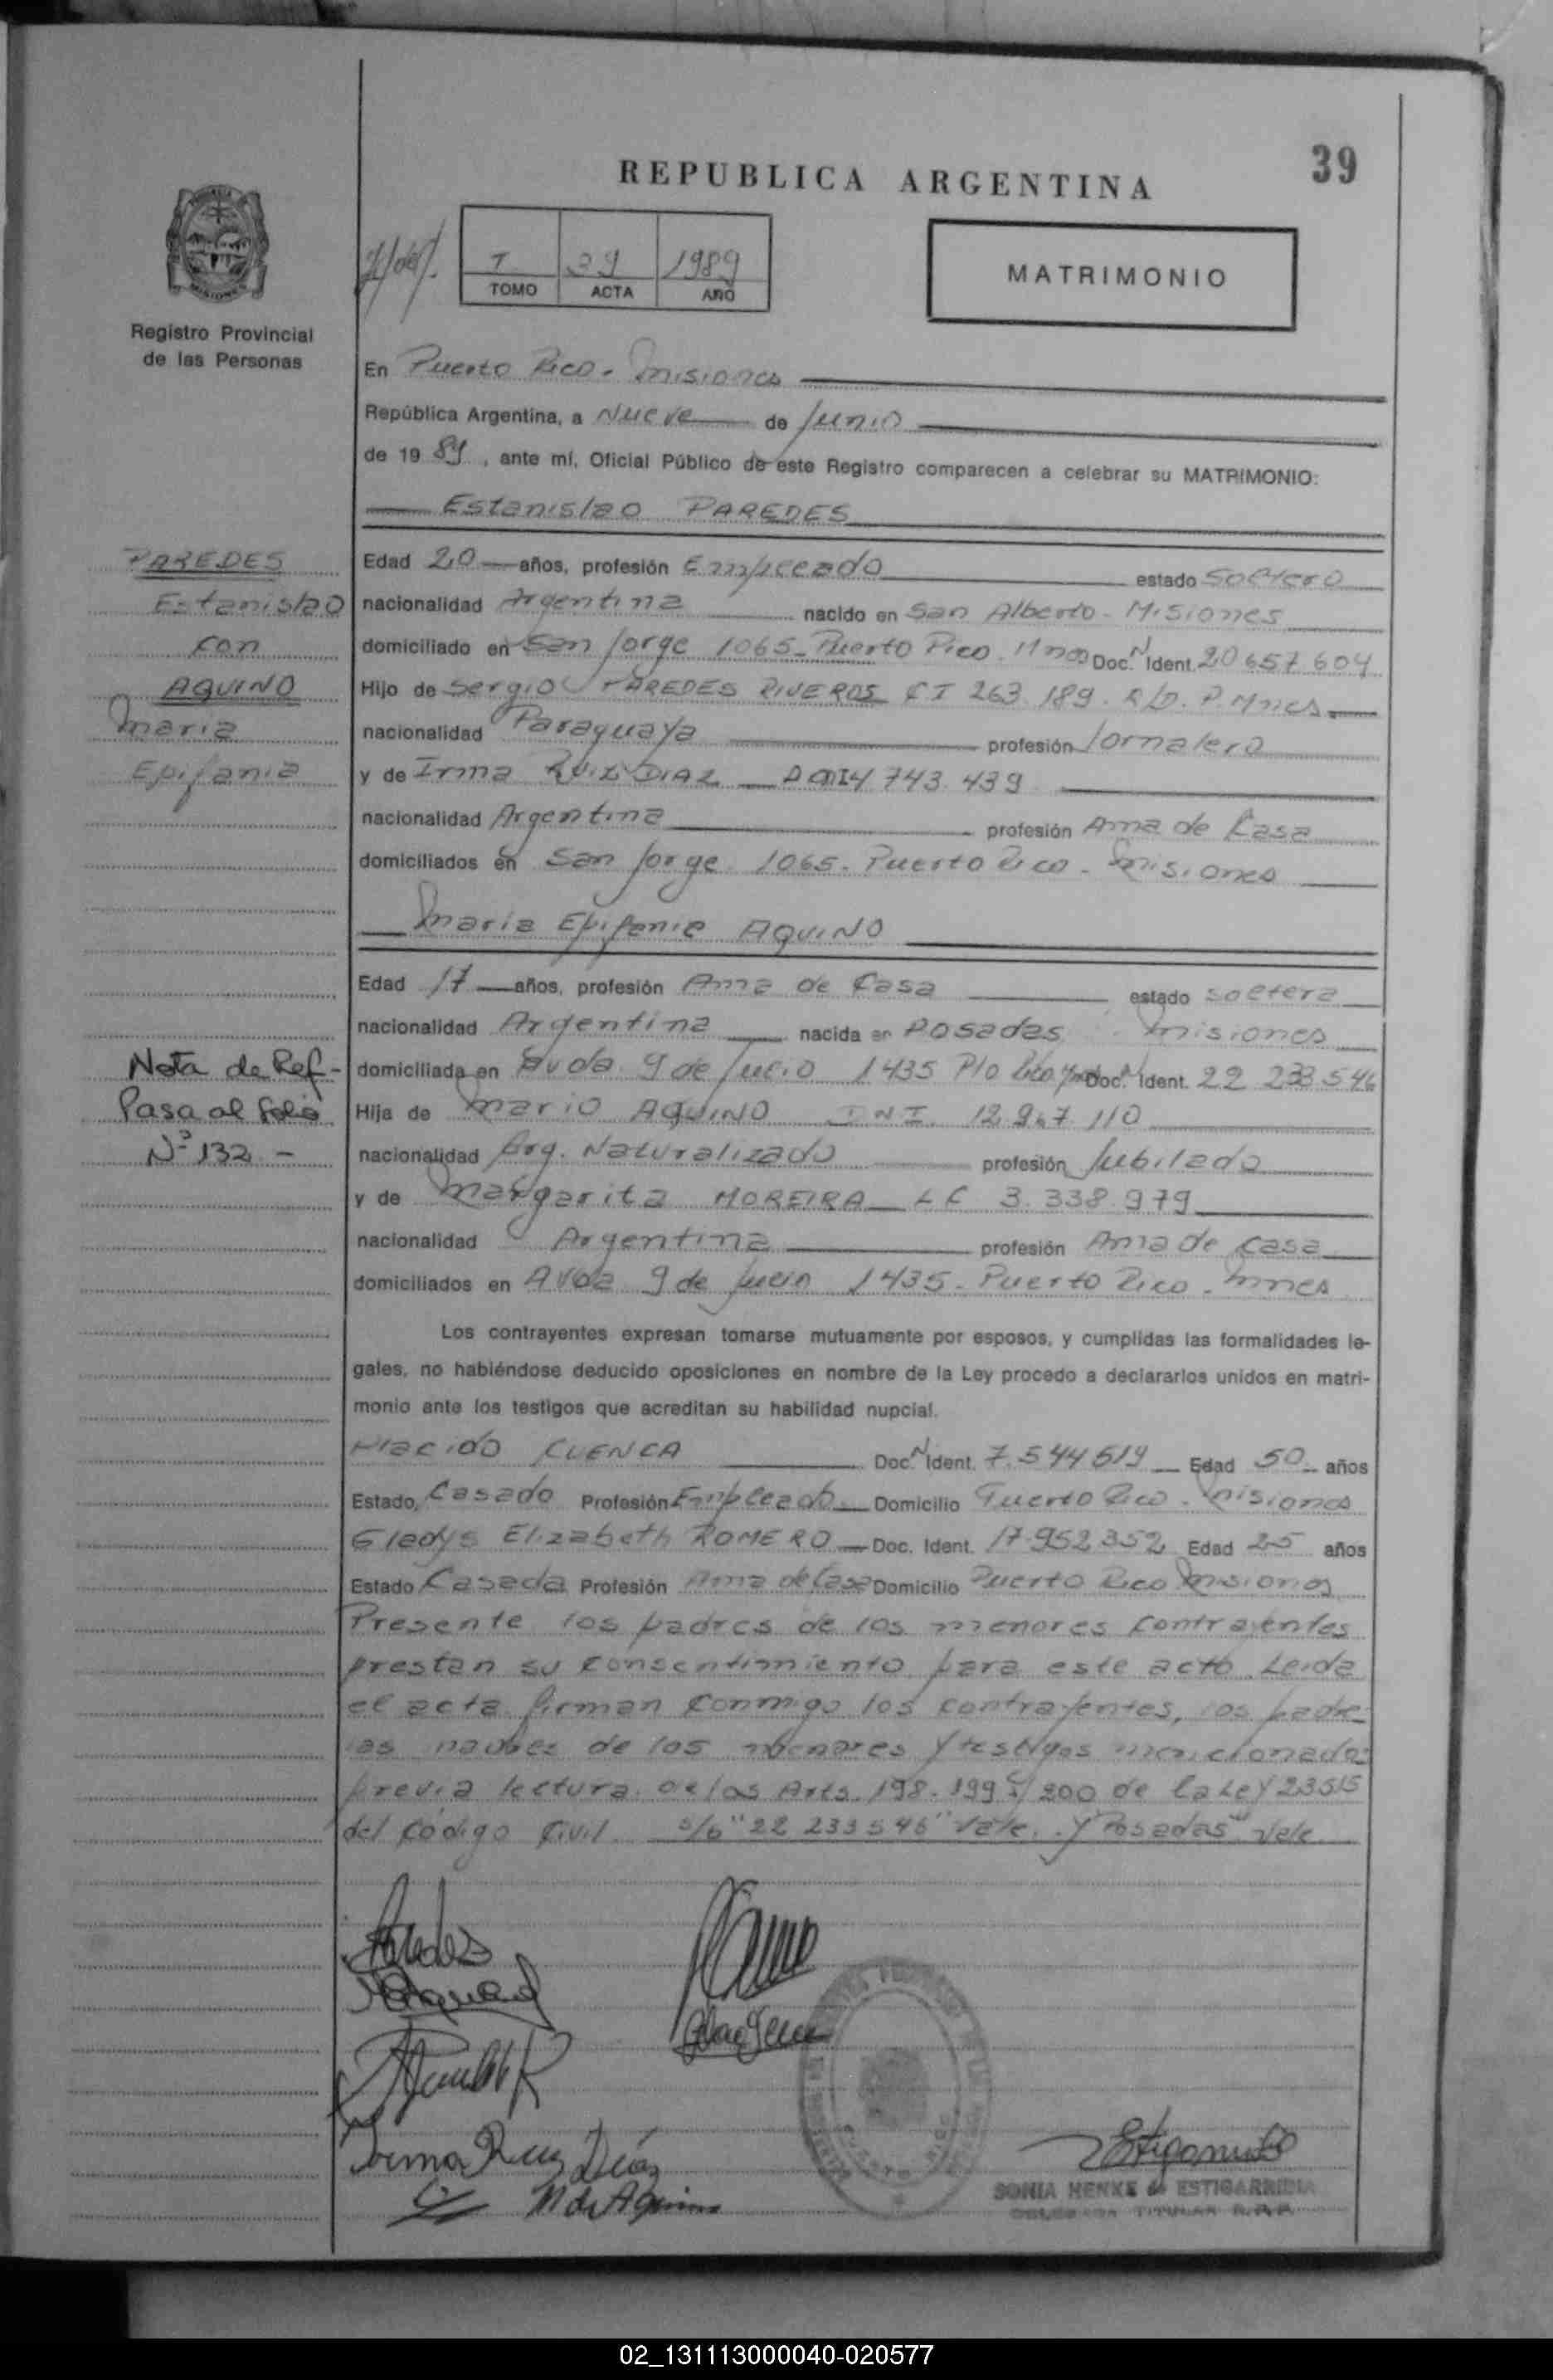 39
REPUBLICA ARGENTINA
T 39 1989
TOMO ACTA AÑO
MATRIMONIO
Registro Provincial
de las Personas
En Puerto Rico - Misiones
República Argentina, a Nueve de Junio
de 19 89, ante mí, Oficial Público de este Registro comparecen a celebrar su MATRIMONIO:
Estanislao PAREDES
PAREDES
Estanislao
con
AQUINO
Maria
Epifania
Edad 20 años, profesión Empleado estado Soltero
nacionalidad Argentina nacido en San Alberto - Misiones
domiciliado en San Jorge 1065 - Puerto Rico. Mnes Doc. N Ident. 20 657 604
Hijo de Sergio PAREDES RIVEROS CI 263.189. P. Mnes.
nacionalidad Paraguaya profesión Jornalero
y de Irma RUIZ DIAZ 743.439
nacionalidad Argentina profesión Ama de Casa
domiciliados en San Jorge 1065 - Puerto Rico - Misiones
Maria Epifania AQUINO
Edad 17 años, profesión Ama de Casa estado soltera
nacionalidad Argentina nacida en Posadas Misiones
Nota de Ref-
Pasa al folio
Nº 132 -
domiciliada en Avda. 9 de Julio 1435 Pto Rico Doc. N Ident. 22 233 546
Hija de Mario AQUINO DNI. 12.967.110
nacionalidad Arg. Naturalizado profesión Jubilado
y de Margarita MOREIRA LC 3.338.979
nacionalidad Argentina profesión Ama de Casa
domiciliados en Avda 9 de Julio 1435 - Puerto Rico - Mnes
Los contrayentes expresan tomarse mutuamente por esposos, y cumplidas las formalidades le-
gales, no habiéndose deducido oposiciones en nombre de la Ley procedo a declararlos unidos en matri-
monio ante los testigos que acreditan su habilidad nupcial.
Placido CUENCA Doc. N Ident. 7.544519 Edad 50 años
Estado, Casado Profesión Empleado Domicilio Puerto Rico - Misiones
Gladys Elizabeth ROMERO Doc. Ident. 17.952.352 Edad 25 años
Estado Casada Profesión Ama de Casa Domicilio Puerto Rico Misiones
Presente los padres de los menores contrayentes
prestan su consentimiento para este acto. Leida
el acta firman conmigo los contrayentes, los padre-
las madres de los menores y testigos mencionados
previa lectura de los Arts. 198. 199 y 200 de la Ley 23515
del Código Civil. s/b "22 233 546" Vale. y "Posadas" Vale
Paredes
Irma Ruiz Díaz
M de Aquino
SONIA HENKE de ESTIGARRIBIA
TITULAR R.P.P.
02_131113000040-020577